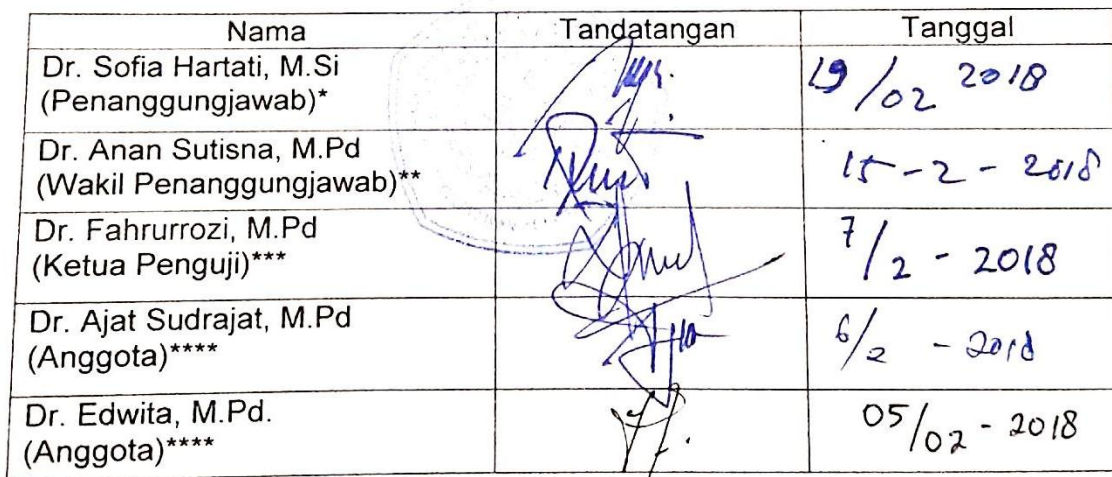 Nama Tandatangan Tanggal
Dr. Sofia Hartati, M.Si
(Penanggungjawab)* 19/02 2018
Dr. Anan Sutisna, M.Pd
(Wakil Penanggungjawab)** 15-2-2018
Dr. Fahrurrozi, M.Pd
(Ketua Penguji)*** 7/2 - 2018
Dr. Ajat Sudrajat, M.Pd
(Anggota)**** 6/2 - 2018
Dr. Edwita, M.Pd.
(Anggota)**** 05/02 - 2018